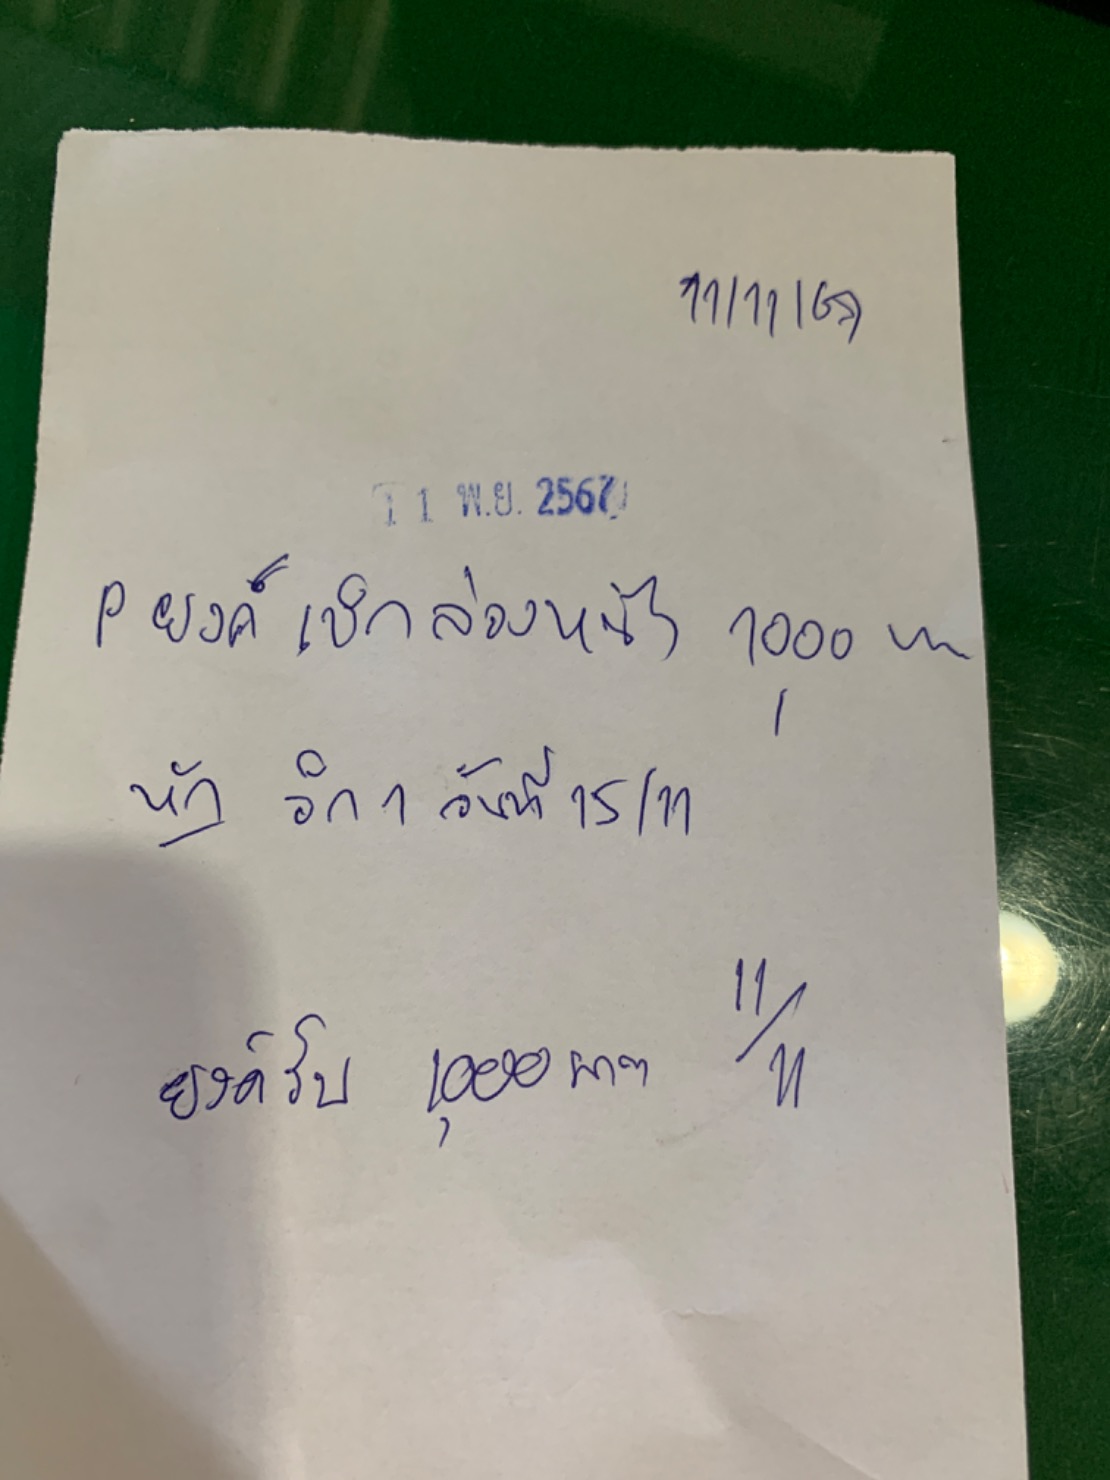 11/11/67
11 พ.ย. 2567
P ยงค์ เบิกล่วงหน้า 1,000
หัก วิก 1 วันที่ 15/11
11/11
ยงค์รับ 1,000 บาท